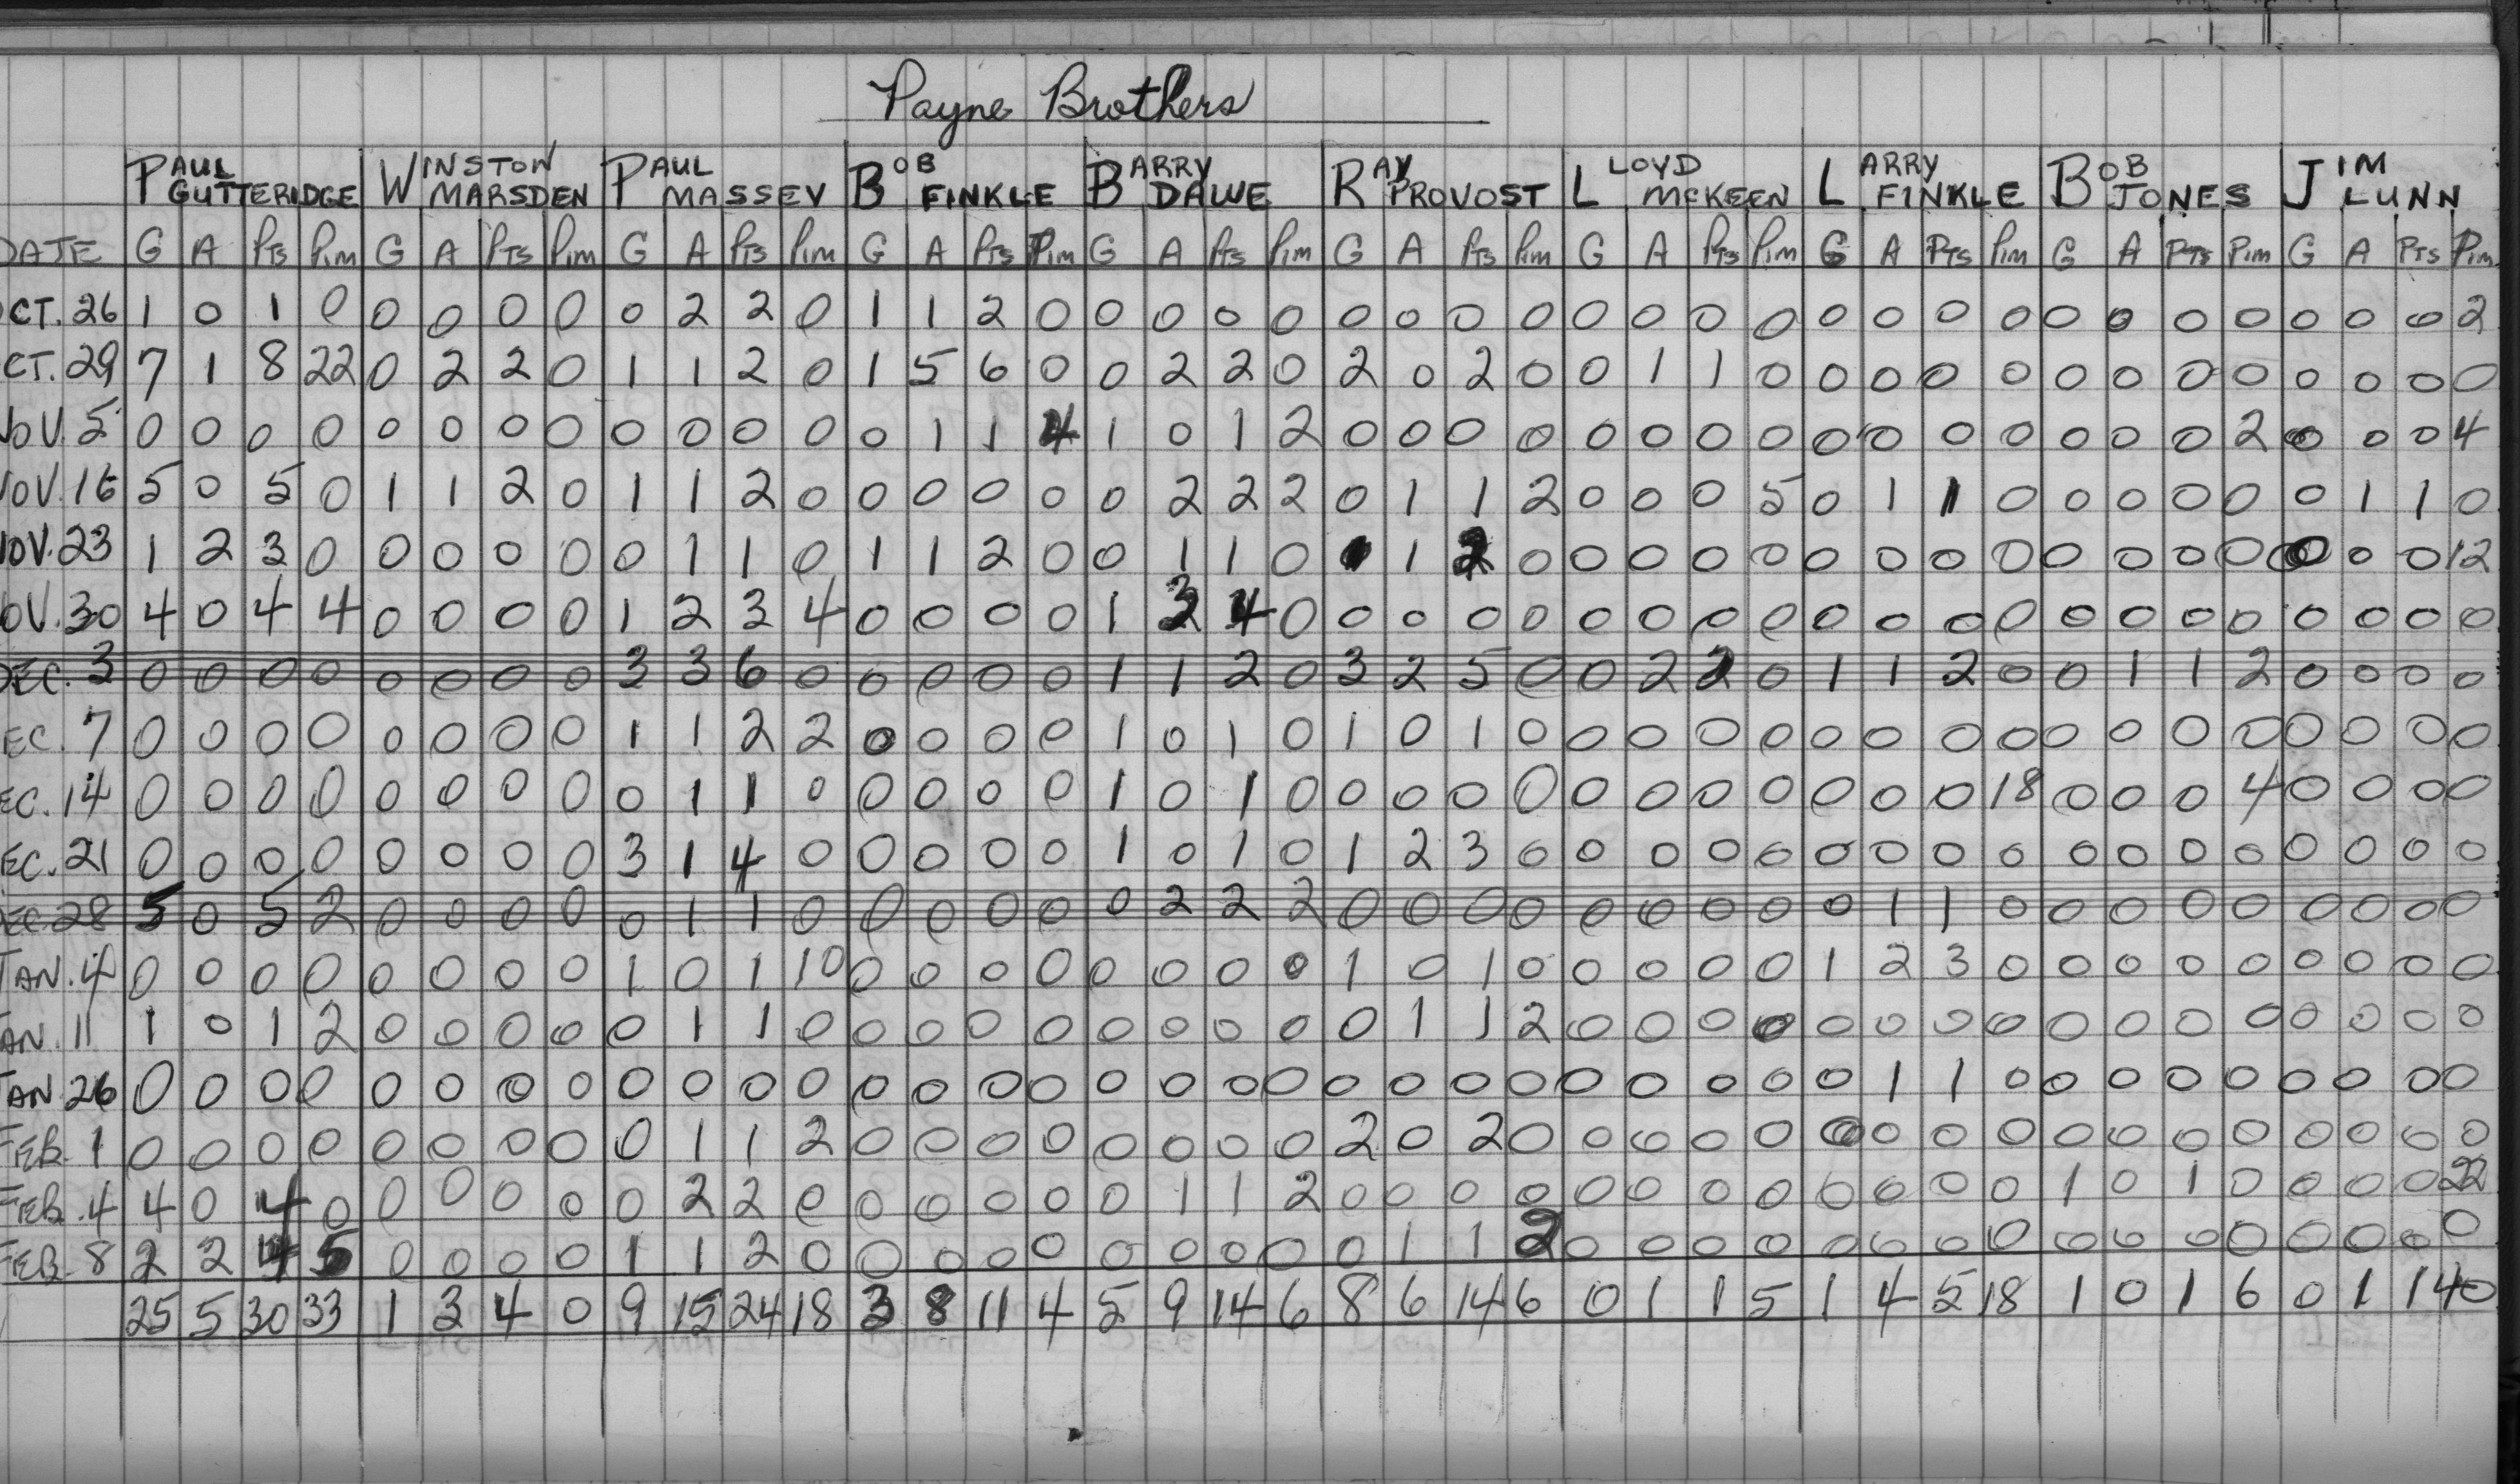 Payne Brothers
PAUL GUTTERIDGE WINSTON MARSDEN PAUL MASSEY BOB FINKLE BARRY DAWE RAY PROVOST LLOYD MCKEEN LARRY FINKLE BOB JONES JIM LUNN
DATE G A Pts Pim G A Pts Pim G A Pts Pim G A Pts Pim G A Pts Pim G A Pts Pim G A Pts Pim G A Pts Pim G A Pts Pim G A Pts Pim
OCT. 26 1 0 1 0 0 0 0 0 0 2 2 0 1 1 2 0 0 0 0 0 0 0 0 0 0 0 0 0 0 0 0 0 0 0 0 0 0 0 0 2
CT. 29 7 1 8 22 0 2 2 0 1 1 2 0 1 5 6 0 0 2 2 0 2 0 2 0 0 1 1 0 0 0 0 0 0 0 0 0 0 0 0 0
NOV. 5 0 0 0 0 0 0 0 0 0 0 0 0 0 1 1 4 1 0 1 2 0 0 0 0 0 0 0 0 0 0 0 0 0 0 0 2 0 0 0 4
NOV. 16 5 0 5 0 1 1 2 0 1 1 2 0 0 0 0 0 0 2 2 2 0 1 1 2 0 0 0 5 0 1 1 0 0 0 0 0 0 1 1 0
NOV. 23 1 2 3 0 0 0 0 0 0 1 1 0 1 1 2 0 0 1 1 0 1 1 2 0 0 0 0 0 0 0 0 0 0 0 0 0 0 0 0 12
OV. 30 4 0 4 4 0 0 0 0 1 2 3 4 0 0 0 0 1 3 4 0 0 0 0 0 0 0 0 0 0 0 0 0 0 0 0 0 0 0 0 0
DEC. 3 0 0 0 0 0 0 0 0 3 3 6 0 0 0 0 0 1 1 2 0 3 2 5 0 0 2 2 0 1 1 2 0 0 1 1 2 0 0 0 0
EC. 7 0 0 0 0 0 0 0 0 1 1 2 2 0 0 0 0 1 0 1 0 1 0 1 0 0 0 0 0 0 0 0 0 0 0 0 0 0 0 0 0
EC. 14 0 0 0 0 0 0 0 0 0 1 1 0 0 0 0 0 1 0 1 0 0 0 0 0 0 0 0 0 0 0 0 18 0 0 0 4 0 0 0 0
EC. 21 0 0 0 0 0 0 0 0 3 1 4 0 0 0 0 0 1 0 1 0 1 2 3 0 0 0 0 0 0 0 0 0 0 0 0 0 0 0 0 0
EC. 28 5 0 5 2 0 0 0 0 0 1 1 0 0 0 0 0 0 2 2 2 0 0 0 0 0 0 0 0 0 1 1 0 0 0 0 0 0 0 0 0
JAN. 4 0 0 0 0 0 0 0 0 1 0 1 10 0 0 0 0 0 0 0 0 1 0 1 0 0 0 0 0 1 2 3 0 0 0 0 0 0 0 0 0
AN. 11 1 0 1 2 0 0 0 0 0 1 1 0 0 0 0 0 0 0 0 0 0 1 1 2 0 0 0 0 0 0 0 0 0 0 0 0 0 0 0 0
JAN 26 0 0 0 0 0 0 0 0 0 0 0 0 0 0 0 0 0 0 0 0 0 0 0 0 0 0 0 0 0 1 1 0 0 0 0 0 0 0 0 0
FEB. 1 0 0 0 0 0 0 0 0 0 1 1 2 0 0 0 0 0 0 0 0 2 0 2 0 0 0 0 0 0 0 0 0 0 0 0 0 0 0 0 0
FEB. 4 4 0 4 0 0 0 0 0 0 2 2 0 0 0 0 0 0 1 1 2 0 0 0 0 0 0 0 0 0 0 0 0 1 0 1 0 0 0 0 22
FEB. 8 2 2 4 5 0 0 0 0 1 1 2 0 0 0 0 0 0 0 0 0 0 1 1 2 0 0 0 0 0 0 0 0 0 0 0 0 0 0 0 0
25 5 30 33 1 3 4 0 9 15 24 18 3 8 11 4 5 9 14 6 8 6 14 6 0 1 1 5 1 4 5 18 1 0 1 6 0 1 1 40